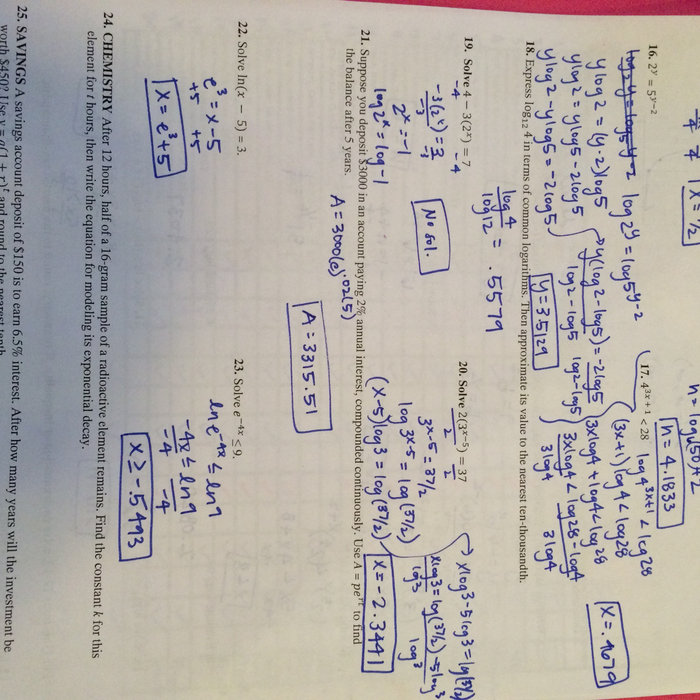 x = 1/2
n = 4.1833
16. 2^y = 5^(y-2)
log 2^y = log 5^(y-2)
y log 2 = (y-2) log 5
y log 2 = y log 5 - 2 log 5
y log 2 - y log 5 = -2 log 5
y(log 2 - log 5) = -2 log 5
log 2 - log 5 log 2 - log 5
y = 3.5129
17. 4^(3x + 1) < 28
log 4^(3x+1) < log 28
(3x+1) log 4 < log 28
3x log 4 + log 4 < log 28
3x log 4 < log 28 - log 4
3 log 4 3 log 4
x = .4679
18. Express log₁₂ 4 in terms of common logarithms. Then approximate its value to the nearest ten-thousandth.
log 4 / log 12 = .5579
19. Solve 4 - 3(2^x) = 7
-4 -4
-3(2^x) = 3
-3 -3
2^x = -1
log 2^x = log -1
No sol.
20. Solve 2(3^(x-5)) = 37
2 2
3^(x-5) = 37/2
log 3^(x-5) = log (37/2)
(x-5) log 3 = log (37/2)
x log 3 - 5 log 3 = log (37/2)
x log 3 = log (37/2) - 5 log 3
log 3 log 3
x = -2.3441
21. Suppose you deposit $3000 in an account paying 2% annual interest, compounded continuously. Use A = pe^(rt) to find
the balance after 5 years.
A = 3000(e)^(.02(5))
A = 3315.51
22. Solve ln(x - 5) = 3.
e^3 = x - 5
+5 +5
x = e^3 + 5
23. Solve e^(-4x) ≤ 9.
ln e^(-4x) ≤ ln 9
-4x ≤ ln 9
-4 -4
x ≥ -.5493
24. CHEMISTRY After 12 hours, half of a 16-gram sample of a radioactive element remains. Find the constant k for this
element for t hours, then write the equation for modeling its exponential decay.
25. SAVINGS A savings account deposit of $150 is to earn 6.5% interest. After how many years will the investment be
worth $450? Use y = a(1 + r)^t and round to the nearest tenth